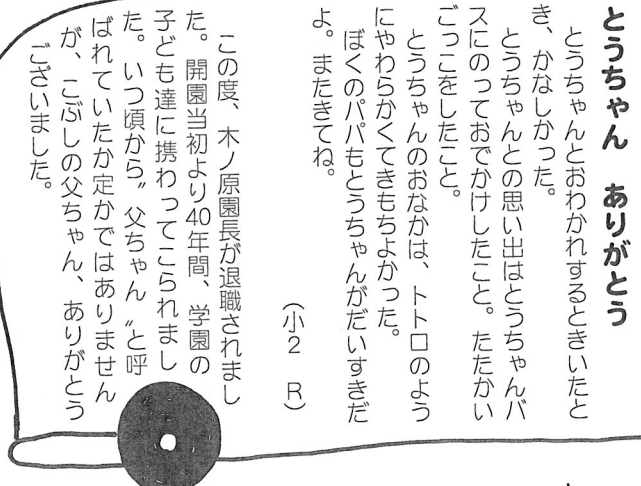 とうちゃん　ありがとう
　とうちゃんとおわかれするときいたと
き、かなしかった。
　とうちゃんとの思い出はとうちゃんバ
スにのっておでかけしたこと。たたかい
ごっこをしたこと。
　とうちゃんのおなかは、トトロのよう
にやわらかくてきもちよかった。
　ぼくのパパもとうちゃんがだいすきだ
よ。またきてね。
（小2　R）
　この度、木ノ原園長が退職されまし
た。開園当初より40年間、学園の
子ども達に携わってこられまし
た。いつ頃から〝父ちゃん〟と呼
ばれていたか定かではありません
が、こぶしの父ちゃん、ありがとう
ございました。